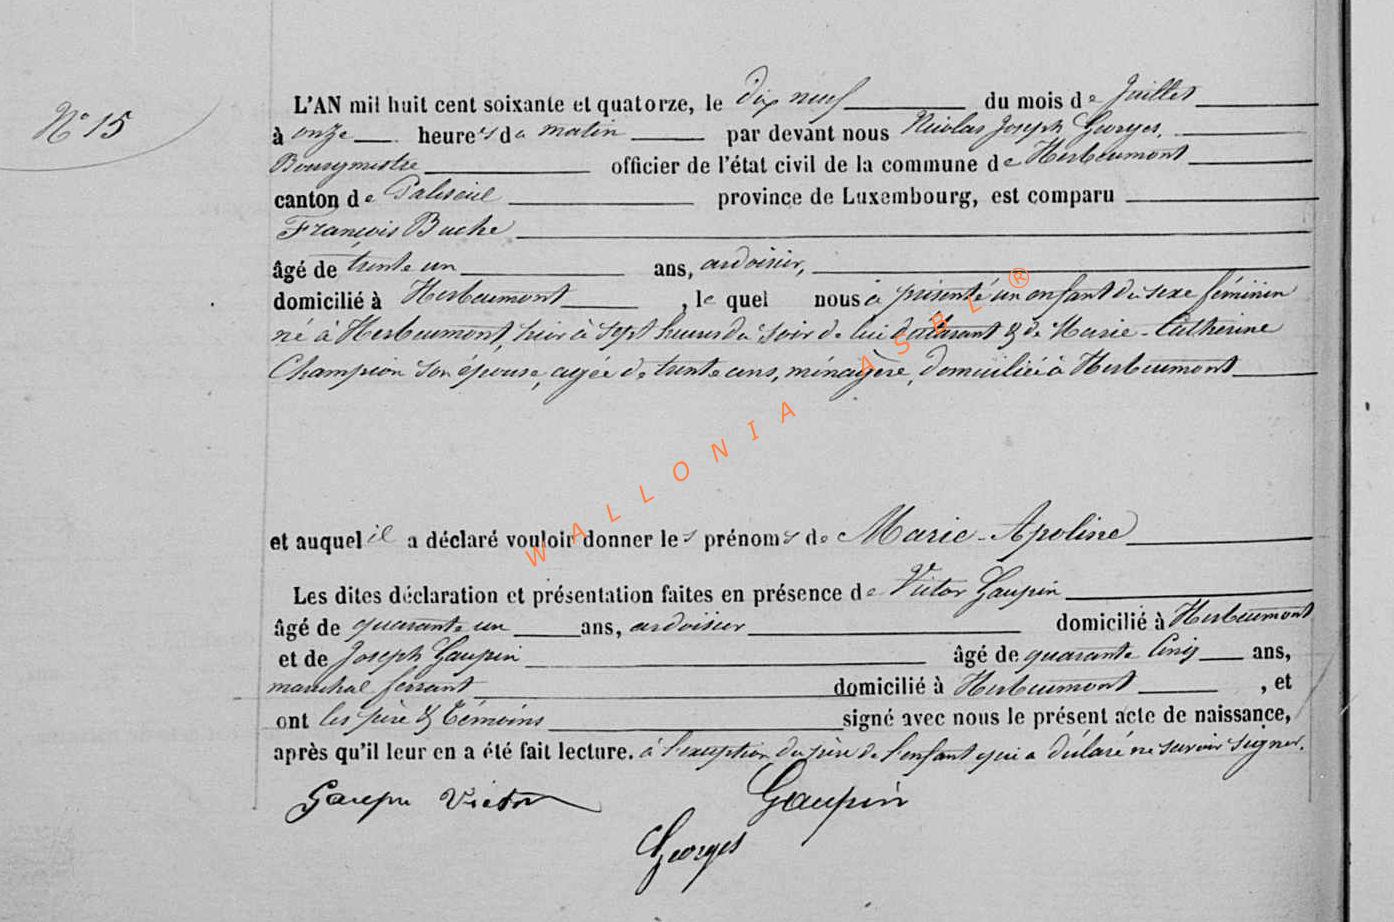 N° 15
L'AN mil huit cent soixante et quatorze, le dix neuf du mois de Juillet
à onze heures du matin par devant nous Nicolas Joseph Georges,
Bourgmestre officier de l'état civil de la commune de Herbeumont
canton de Paliseul province de Luxembourg, est comparu
François Buche
âgé de trente un ans, ardoisier,
domicilié à Herbeumont, le quel nous a présenté un enfant du sexe féminin
né à Herbeumont, hier à sept heures du soir de lui déclarant & de Marie-Catherine
Champion son épouse, agée de trente ans, ménagère, domiciliée à Herbeumont
et auquel il a déclaré vouloir donner les prénoms de Marie-Apoline
Les dites déclaration et présentation faites en présence de Victor Gaupin
âgé de quarante un ans, ardoisier domicilié à Herbeumont
et de Joseph Gaupin âgé de quarante cinq ans,
maréchal ferrant domicilié à Herbeumont, et
ont les père & témoins signé avec nous le présent acte de naissance,
après qu'il leur en a été fait lecture. à l'exception du père de l'enfant qui a déclaré ne savoir signer.
Gaupin Victor Gaupin
Georges
WALLONIA ASBL ®